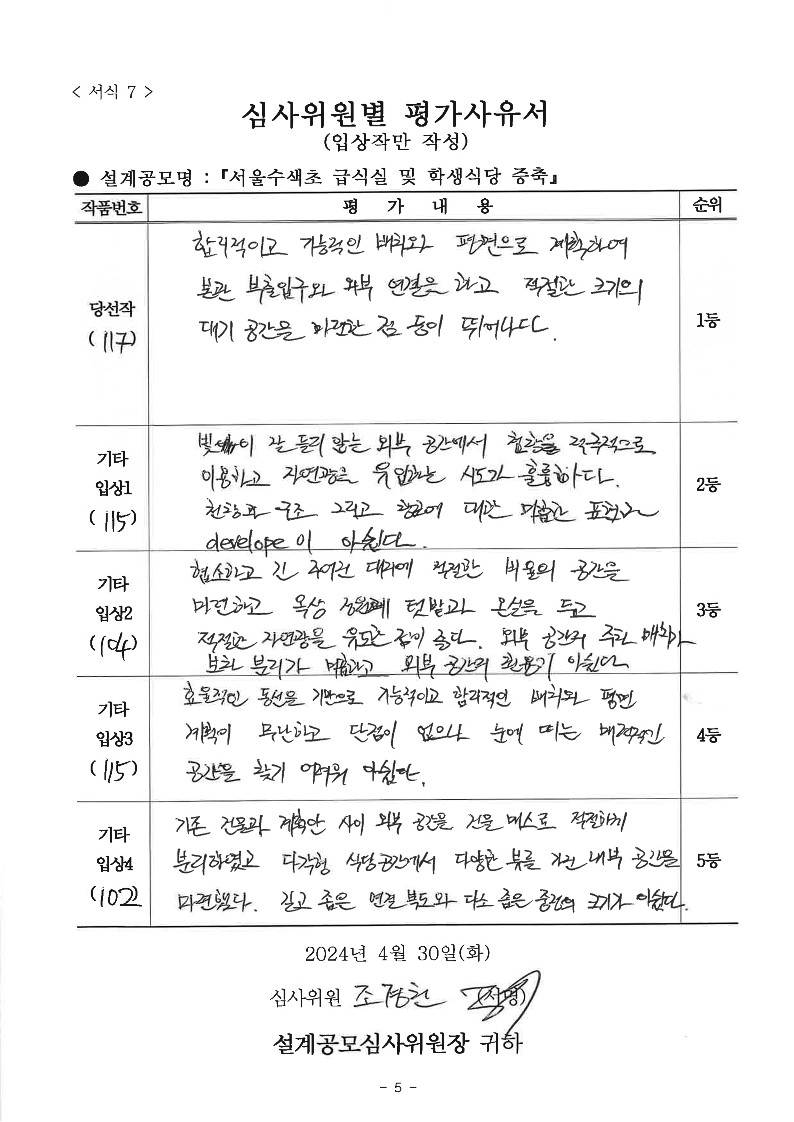 < 서식 7 >
심사위원별 평가사유서
(입상작만 작성)
● 설계공모명 : 『서울수색초 급식실 및 학생식당 증축』
작품번호 평 가 내 용 순위
당선작
(117)
합리적이고 기능적인 배치와 평면으로 계획하여
본관 부출입구와 외부 연결을 하고 적절한 크기의
대기 공간을 마련한 점 등이 뛰어나다.
1등
기타
입상1
(115)
빛이 잘 들지 않는 외부 공간에서 천창을 적극적으로
이용하고 자연광을 유입하는 시도가 훌륭하다.
천창과 구조 그리고 대한 미흡한 표현과
develope이 아쉽다.
2등
기타
입상2
(104)
협소하고 긴 주어진 대지에 적절한 비율의 공간을
마련하고 옥상 텃밭과 온실을 두고
적절한 자연광을 유도한 점이 좋다. 외부 공간의 주차 배치가
보차 분리가 미흡하고 외부 공간의 활용이 아쉽다
3등
기타
입상3
(115)
효율적인 동선을 기반으로 기능적이고 합리적인 배치와 평면
계획이 무난하고 단점이 없으나 눈에 띄는 매력적인
공간을 찾기 어려워 아쉽다.
4등
기타
입상4
(102)
기존 건물과 계획안 사이 외부 공간을 건물 매스로 적절하게
분리하였고 다각형 식당공간에서 다양한 뷰를 가진 내부 공간을
마련했다. 길고 좁은 연결 복도와 다소 좁은 중정의 크기가 아쉽다.
5등
2024년 4월 30일(화)
심사위원 조경천 (서명)
설계공모심사위원장 귀하
- 5 -